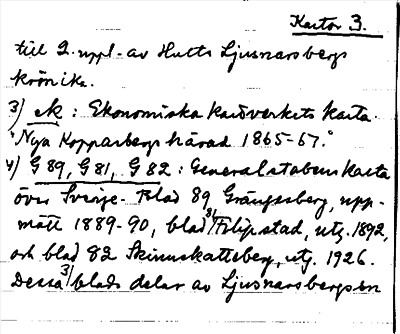 Kartor 3.
till 2. uppl. av Hults Ljusnarsbergs
krönika.
3) ek : Ekonomiska kartverkets karta.
"Nya Kopparbergs härad 1865-67."
4) G 89, G 81, G 82 : Generalstabens karta
över Sverige. Blad 89 Grängesberg, upp-
mätt 1889-90, blad 81 Filipstad, utg. 1892,
och blad 82 Skinnskatteberg, utg. 1926.
Dessa 3 blads delar av Ljusnarsbergs sn